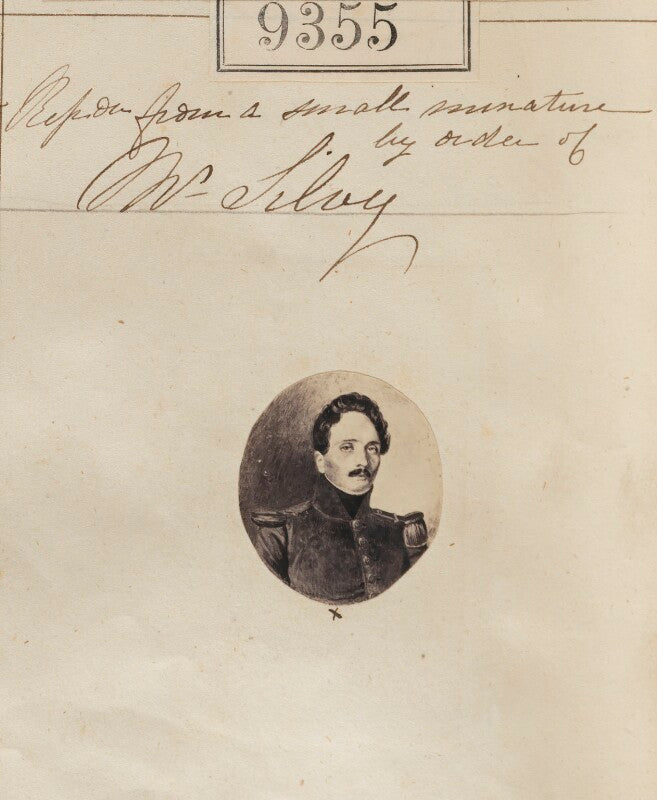 9355
from a small minature
by order of
Mr Silvy